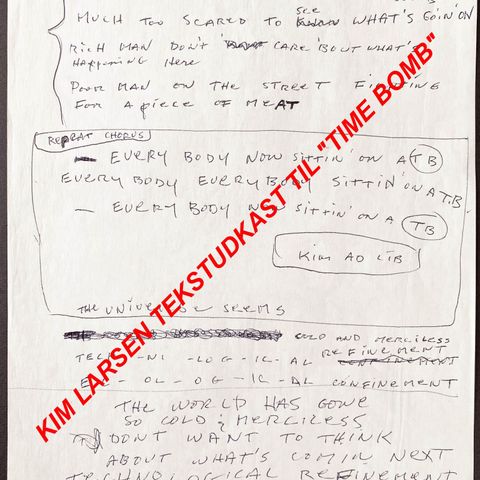 see
MUCH TOO SCARED TO KNOW WHAT'S GOIN' ON
RICH MAN DON'T CARE 'BOUT WHAT'S
HAPPENING HERE
POOR MAN ON THE STREET FIGHTING
FOR A PIECE OF MEAT
REPEAT CHORUS
— EVERY BODY NOW SITTIN' ON A TB
EVERY BODY EVERY BODY SITTIN' ON A T.B.
— EVERY BODY NOW SITTIN' ON A TB
Kim AD LIB
THE UNIVERSE SEEMS
COLD AND MERCILESS
REFINEMENT
TECH-NI-LOG-IC-AL
E - OL-OG-IC-AL CONFINEMENT
THE WORLD HAS GONE
SO COLD & MERCILESS
DON'T WANT TO THINK
ABOUT WHAT'S COMIN NEXT
TECHNOLOGICAL REFINEMENT
KIM LARSEN TEKSTUDKAST TIL "TIME BOMB"